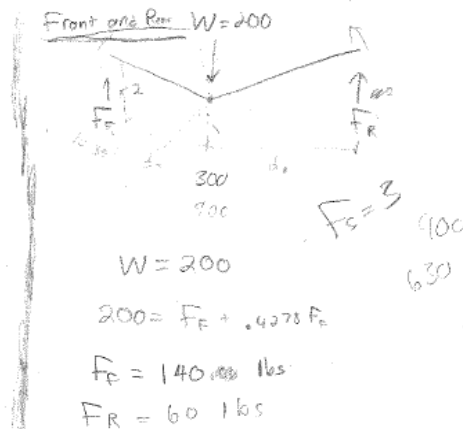 Front and Rear W=200
2
F_F
F_R
300
900
F_S = 3
900
630
W = 200
200 = F_F + .4278 F_F
F_F = 140 lbs
F_R = 60 lbs